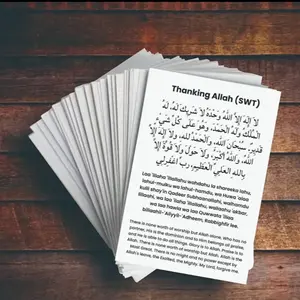 Thanking Allah (SWT)
لاَ إِلَهَ إِلاَّ اللهُ وَحْدَهُ لاَ شَرِيكَ لَهُ، لَهُ
الْمُلْكُ وَلَهُ الْحَمْدُ، وَهُوَ عَلَى كُلِّ شَيْءٍ
قَدِيرٌ، سُبْحَانَ اللهِ، وَالْحَمْدُ للهِ، وَلاَ إِلَهَ إِلاَّ
اللهُ وَاللهُ أَكْبَرُ، وَلاَ حَوْلَ وَلاَ قُوَّةَ إِلاَّ
بِاللهِ الْعَلِيِّ الْعَظِيمِ، رَبِّ اغْفِرْلِي
Laa 'ilaha 'illallahu wahdahu la shareeka lahu,
lahul-mulku wa lahul-hamdu, wa Huwa 'alaa
kulli shay'in Qadeer Subhaanallahi, walhamdu
lillaahi, wa laa 'ilaha 'illallahu, wallaahu 'akbar,
wa laa hawla wa laa Quwwata 'illaa
billaahil-'Aliyyil-'Adheem, Rabbighfir lee.
There is none worth of worship but Allah alone, Who has no
partner, His is the dominion and to Him belongs all praise,
and He is able to do all things. Glory is to Allah. Praise is to
Allah. There is none worth of worship but Allah. Allah is the
Most Great. There is no might and no power except by
Allah's leave, the Exalted, the Mighty. My Lord, forgive me.